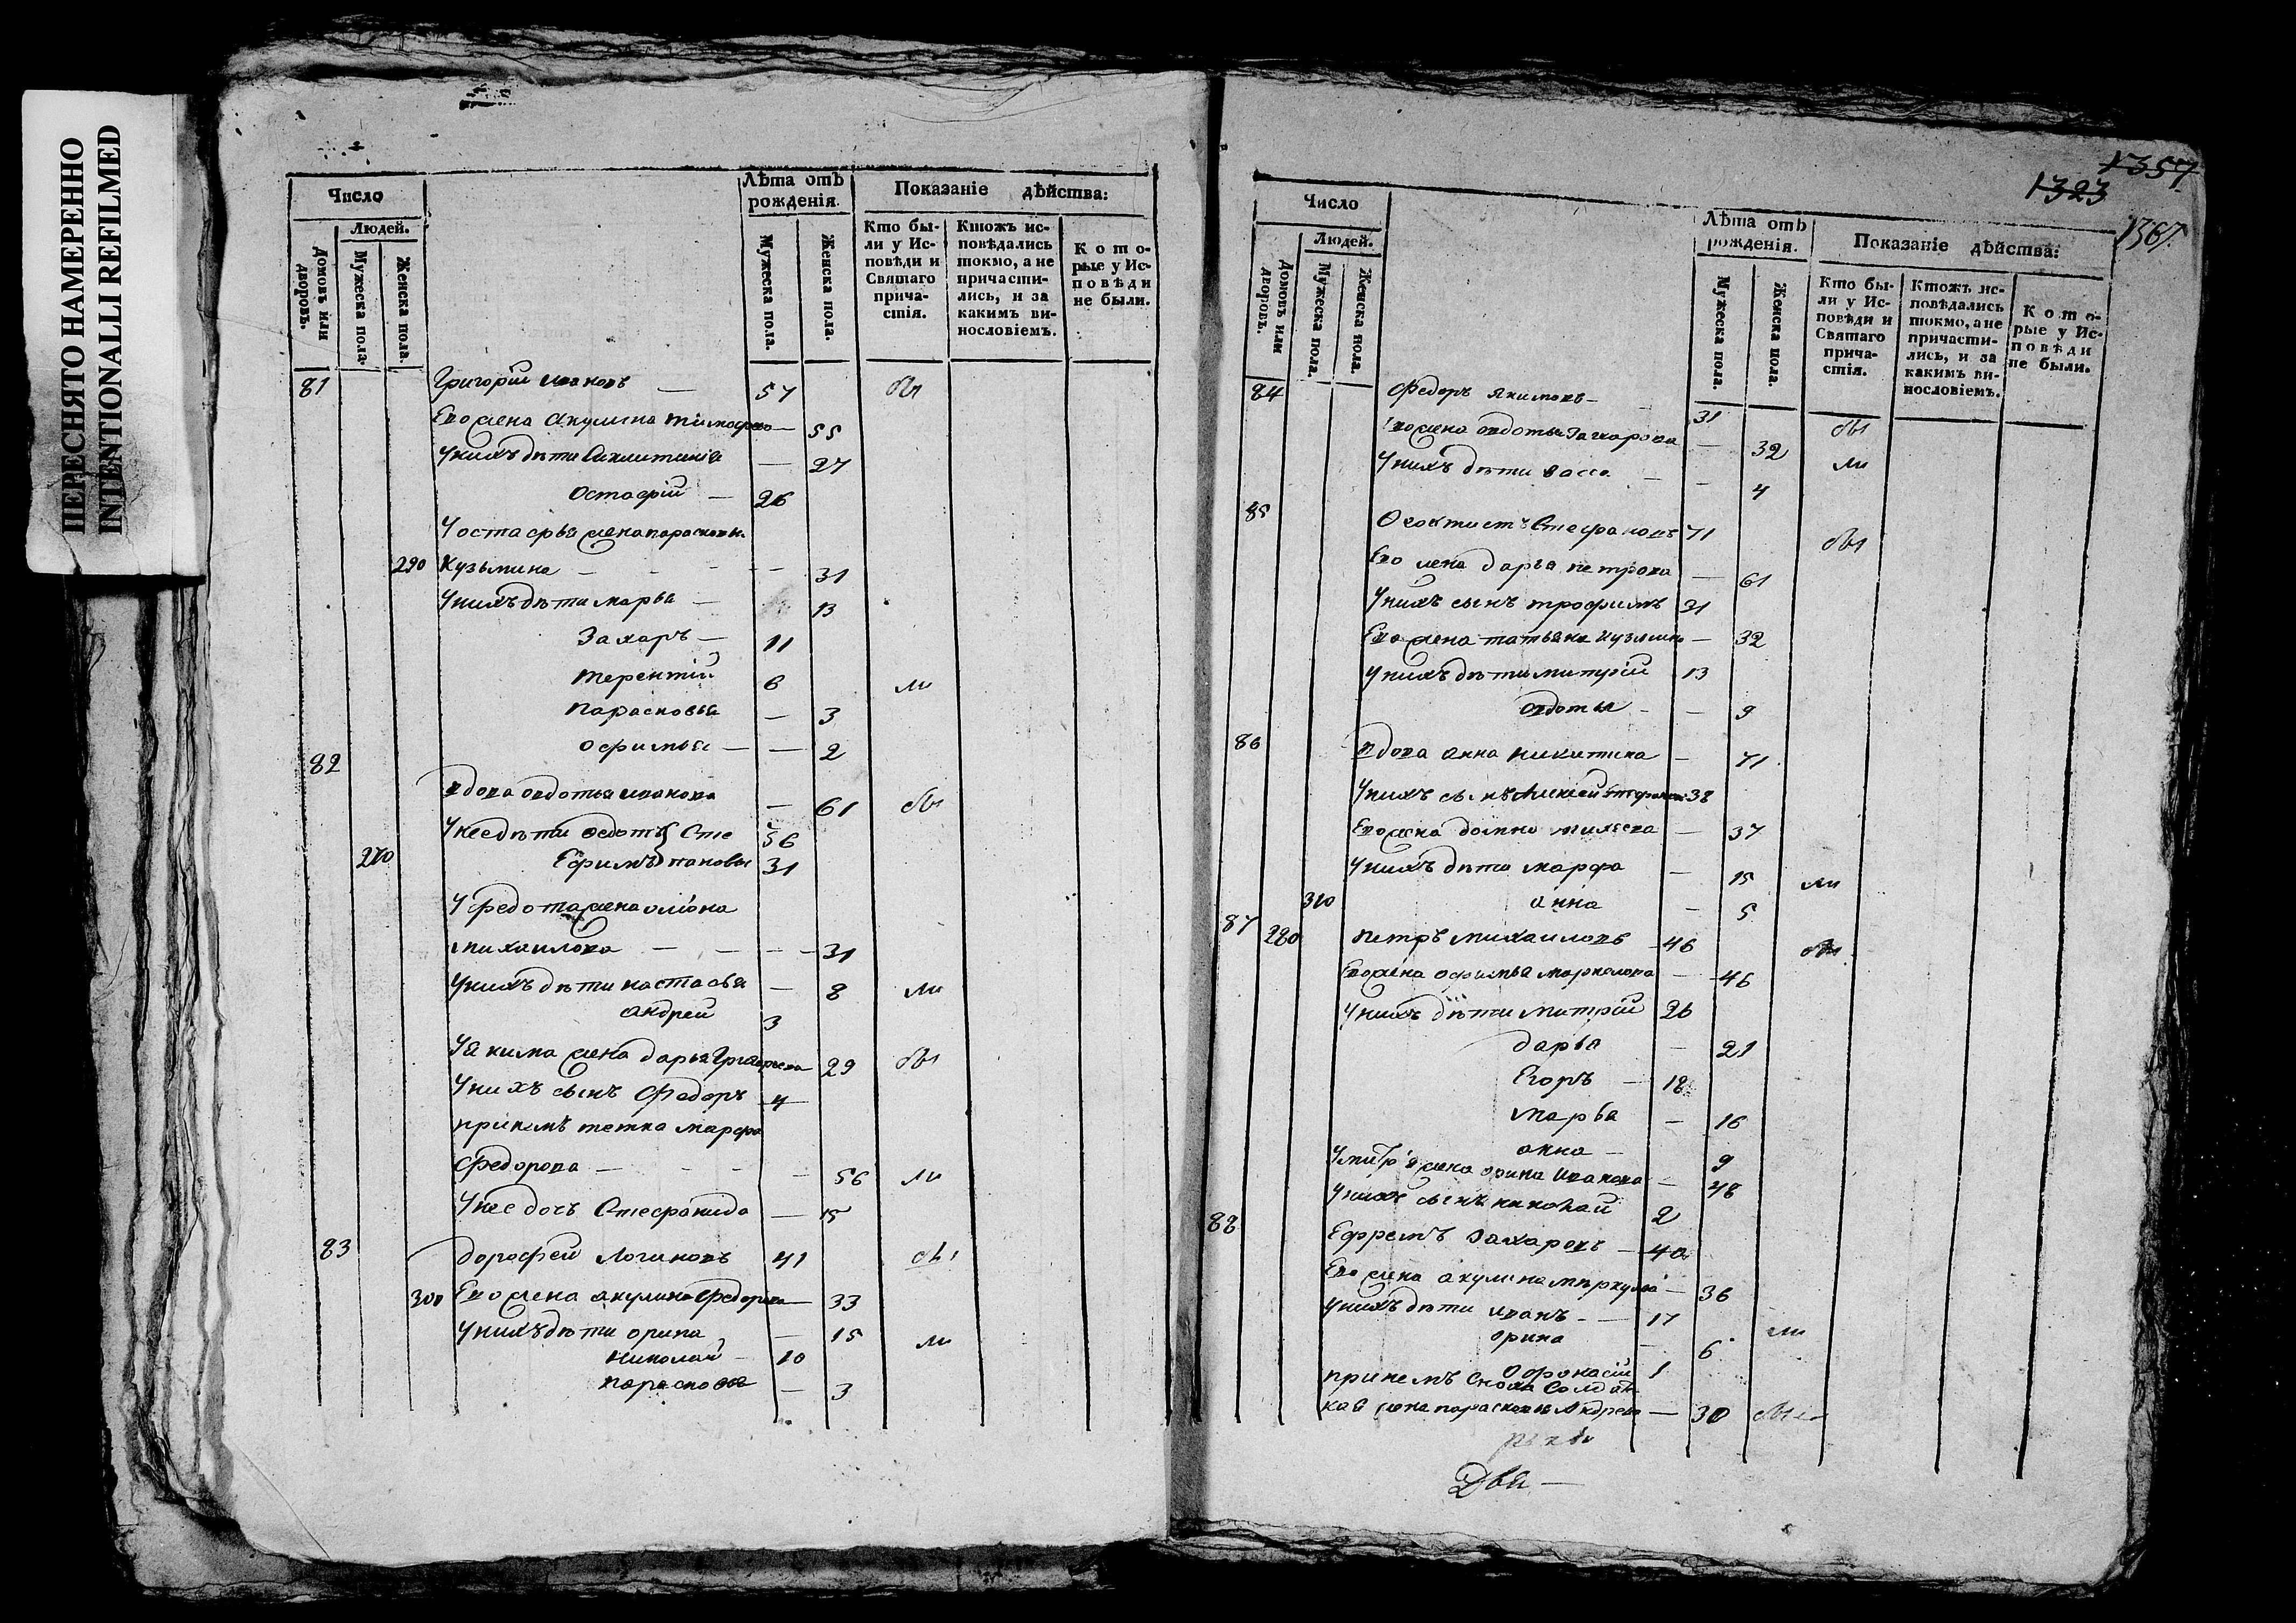 ПЕРЕСНЯТО НАМЕРЕННО
INTENTIONALLI REFILMED
Число
Лѣта отъ рожденія.
Показаніе дѣйства:
Домовъ или дворовъ.
Людей.
Мужеска пола.
Женска пола.
Мужеска пола.
Женска пола.
Кто были у Исповѣди и Святаго причастія.
Ктожъ исповѣдались токмо, а не причастились, и за какимъ винословіемъ.
Которые у Исповѣди не были.
81 Григорій Ивановъ — 57 бы
Его жена Акулина Тимофѣева — 55
У нихъ дѣти — 27
Остафій — 26
У Остафья жена Парасковья
290 Кузьмина — 31
У нихъ дѣти Марья — 13
Захаръ — 11
Терентій 6 ли
Парасковья — 3
Офимья — 2
82
вдова Овдотья Иванова — 61 бы
У нее дѣти Федотъ Сте 36
270 Ефимъ пановы 31
У Федота жена
Михаилова — 31
У нихъ дѣти Настасья — 8 ли
Андрей 3
У Якима жена Дарья Григорьева 29 бы
У нихъ сынъ Федоръ 4
при немъ тетка Марфа
Федорова — 56 ли
У нее дочь Стефанида — 15
83 Дорофей Логиновъ 41 бы
300 Его жена Акулина Федорова — 33
У нихъ дѣти Орина — 15 ли
Николай — 10
Парасковья — 3
1357
1323
1367
Число
Лѣта отъ рожденія.
Показаніе дѣйства:
Домовъ или дворовъ.
Людей.
Мужеска пола.
Женска пола.
Мужеска пола.
Женска пола.
Кто были у Исповѣди и Святаго причастія.
Ктожъ исповѣдались токмо, а не причастились, и за какимъ винословіемъ.
Которые у Исповѣди не были.
84 Федоръ Якимовъ — 31 бы
Его жена Овдотья Захарова — 32 ли
У нихъ дѣти Васса — 4
85 Феоктистъ Стефановъ 71 бы
Его жена Дарья Петрова — 61
У нихъ сынъ Трофимъ 31
Его жена Татьяна Кузмина — 32
У нихъ дѣти Митрій 13
Овдотья — 9
86 вдова Анна Никитина — 71
У нихъ сынъ Алексей 38
Его жена Домна — 37
У нихъ дѣти Марфа — 15 ли
310 Анна — 5
87 280 Петръ Михаиловъ 46 бы
Его жена Офимья Маркелова — 46
У нихъ дѣти Митрій 26
Дарья — 21
Егоръ — 18
Марья — 16
Анна — 9
У Митрія жена Орина Иванова — 48
У нихъ сынъ Николай 2
88 Ефремъ Захаровъ — 40
Его жена Акулина — 36
У нихъ дѣти Иванъ — 17 ли
Орина — 6
Офонасій 1
при немъ сноха Солдат
кая жена Парасковья Андреева — 30 бы
Два —